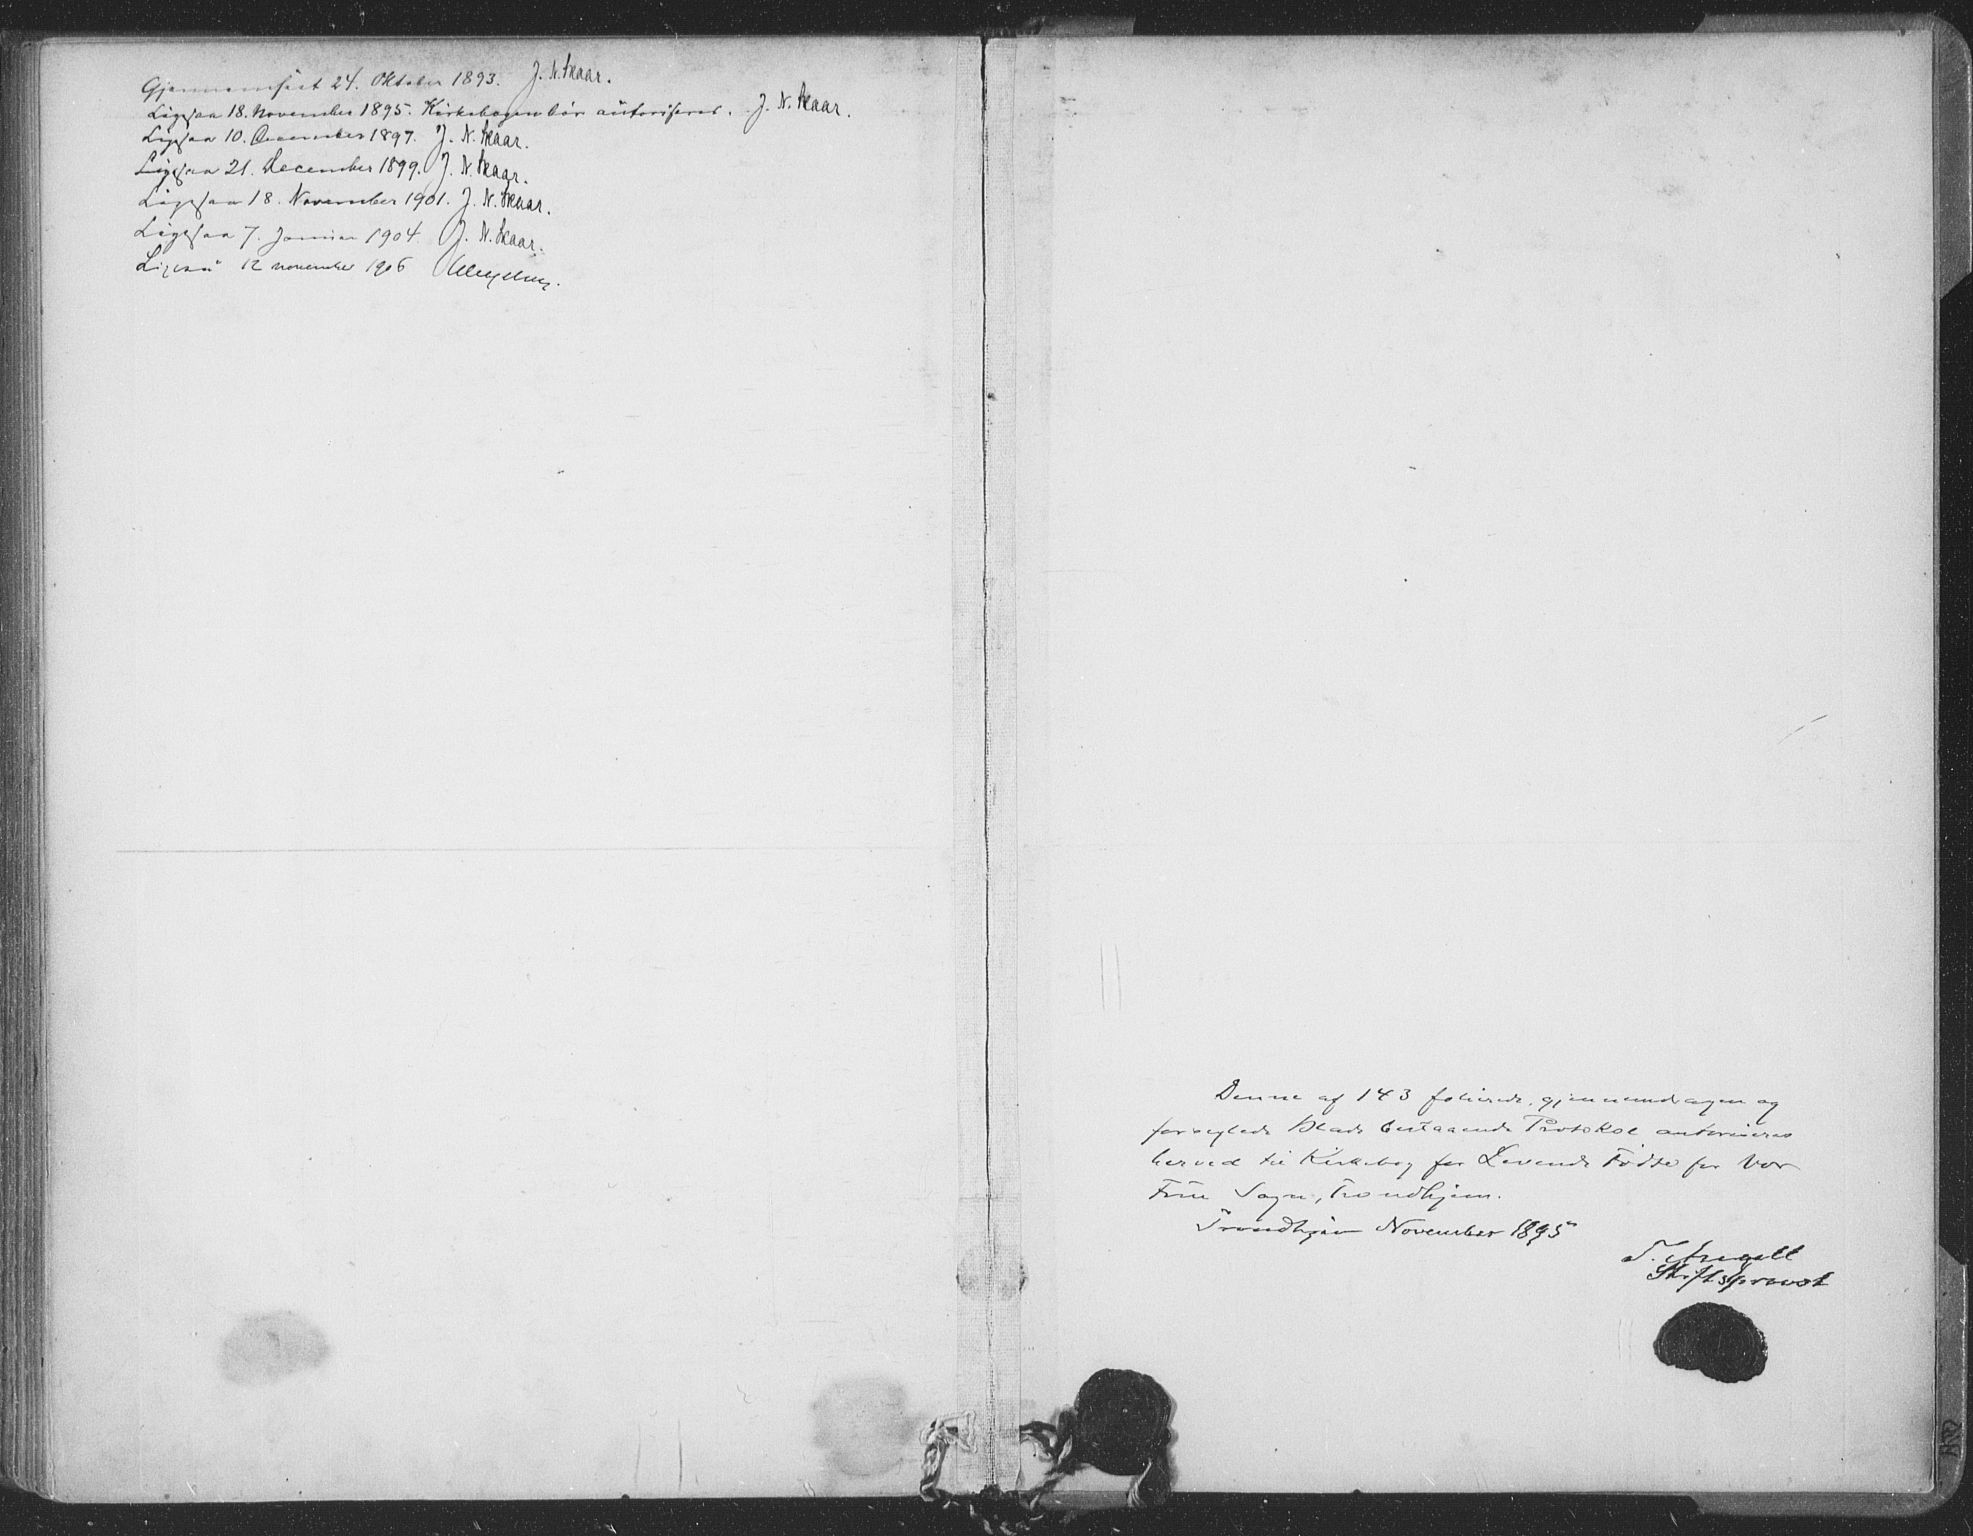 Gjennemseet 24. Oktober 1893. J. N. Skaar.
Ligesaa 18. November 1895. Kirkebogen bør autoriseres. J. N. Skaar.
Ligesaa 10. December 1897. J. N. Skaar.
Ligesaa 21. December 1899. J. N. Skaar.
Ligesaa 18. November 1901. J. N. Skaar.
Ligesaa 7. Januar 1904. J. N. Skaar.
Ligesaa 12 november 1906
Denne af 143 folierede, gjennemdragen og
forseglede Blade bestaaende Protokol autoriseres
herved til Kirkebog for Levende Fødte for Vor
Frue Sogn, Trondhjem.
Trondhjem November 1895
T. Angell
Stiftsprovst